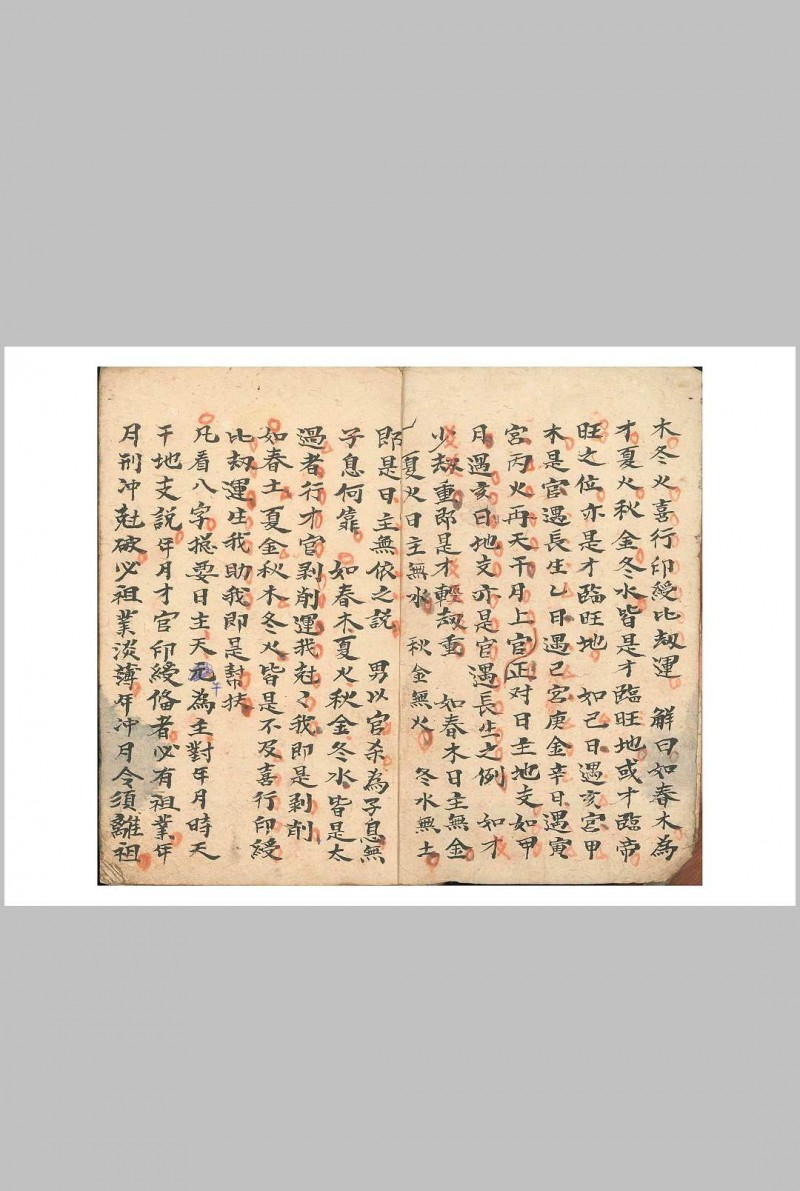 木冬火喜行印綬比刼運　解曰如春木為
才夏火秋金冬水皆是才臨旺地或才臨帝
旺之位亦是才臨旺地　如己日遇亥宮甲
木是官遇長生乙日遇己宮庚金辛日遇寅
宮丙火再天干月上官正对日主地支如甲
月遇亥日地支亦是官遇長生之例　如才
少刼重即是才輕刼重　如春木日主無金
夏火日主無水　秋金無火　冬水無土
即是日主無依之説　男以官杀為子息無
子息何靠　如春木夏火秋金冬水皆是太
過者行才官剥削運我尅〻我即是剥削
如春土夏金秋木冬火皆是不及喜行印綬
比刼運生我助我即是幫扶
凡看八字㧾要日主天干為主對年月時天
干地支説年月才官印綬俻者必有祖業年
月刑冲尅破必祖業淡薄年冲月令須離祖